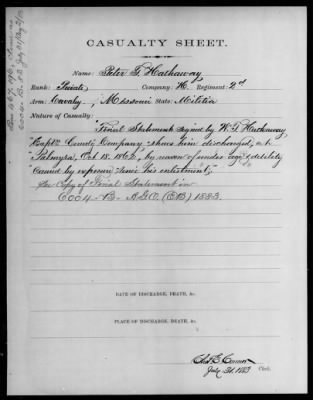 CASUALTY SHEET.
Name: Peter T. Hathaway
Rank: Private Company: K. Regiment: 2d
Arm: Cavalry, Missouri State Militia
Nature of Casualty:
Final Statement signed by W. T. Hathaway
Capt. Comdg Company shows him discharged, at
Palmyra, Oct. 18. 1862, by reason of under age & debility
caused by exposure since his enlistment,
See Copy of Final Statement in
6004-B-A.G.O. (EB) 1883.
DATE OF DISCHARGE, DEATH, &c.
PLACE OF DISCHARGE, DEATH, &c.
July 31. 1883 Clerk.